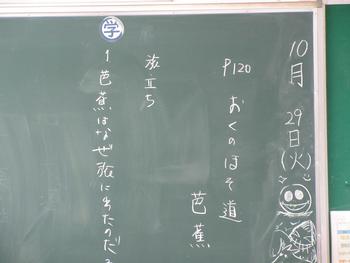 10月29日(火)
P120 おくのほそ道
芭蕉
旅立ち
学
1 芭蕉はなぜ旅に出たのだ